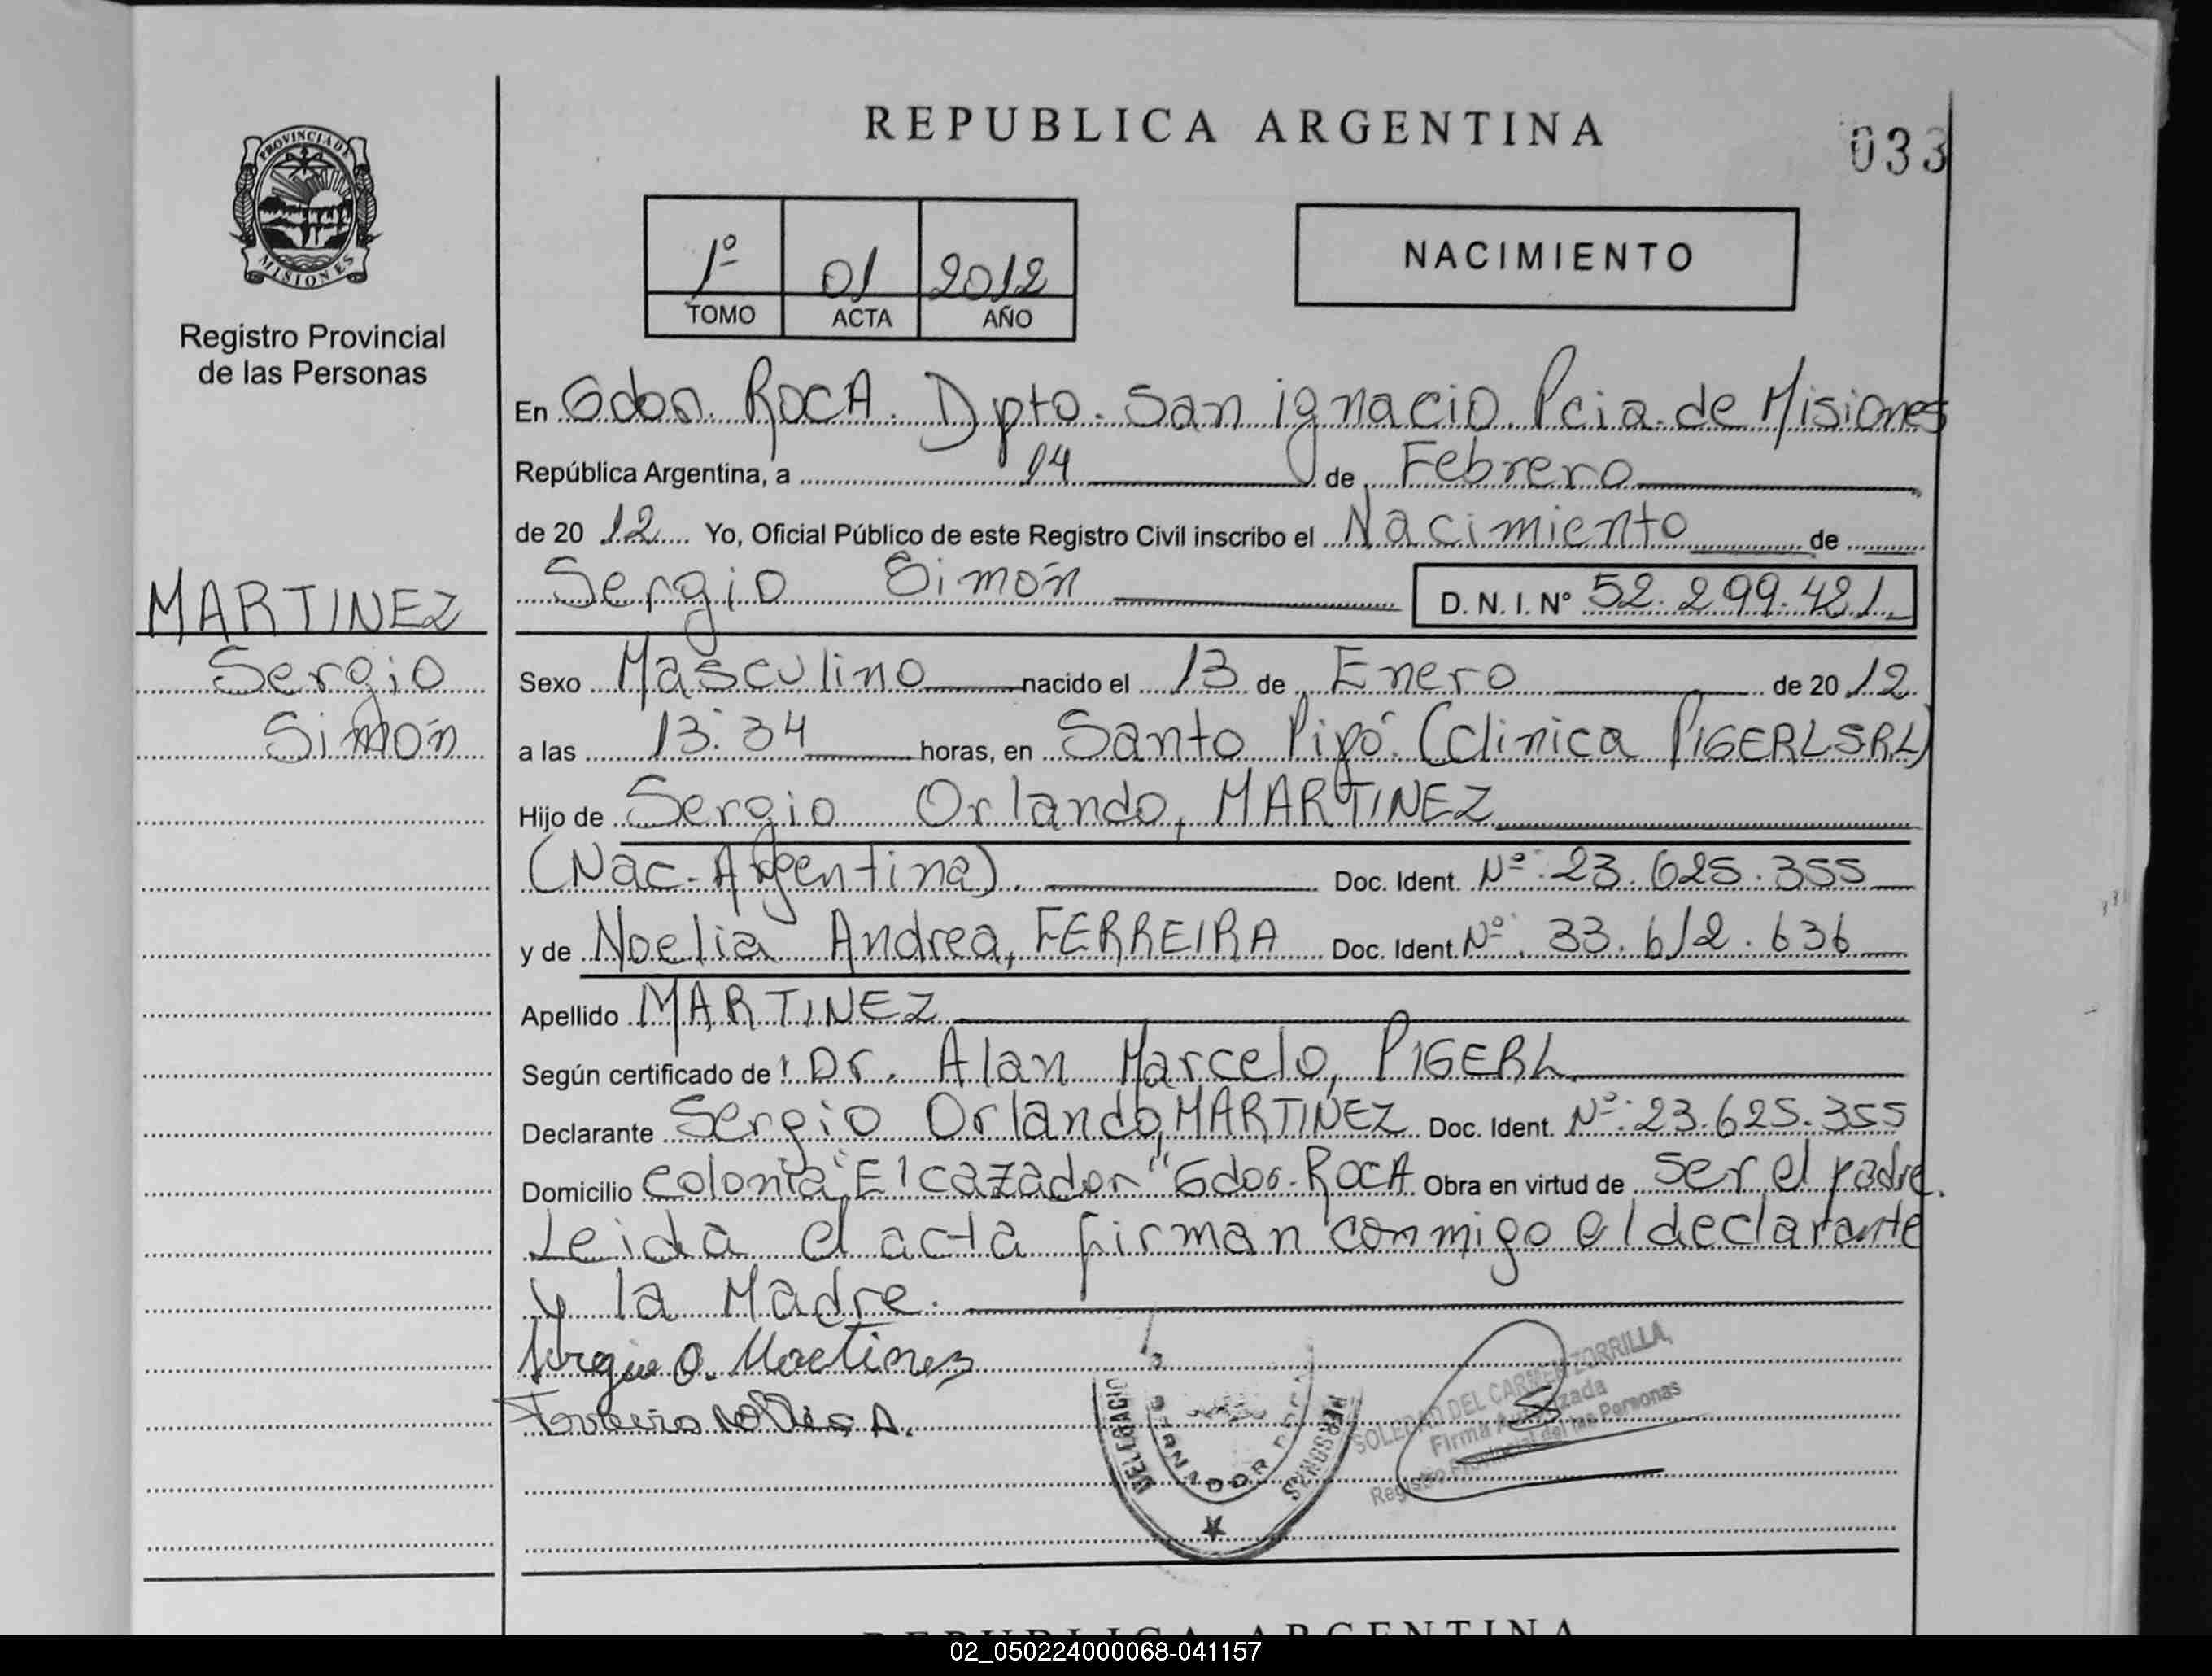 REPUBLICA ARGENTINA
033
PROVINCIA DE
MISIONES
Registro Provincial
de las Personas
1º 01 2012
TOMO ACTA AÑO
NACIMIENTO
En Gdor. ROCA. Dpto. San ignacio. Pcia. de Misiones
República Argentina, a 14 de Febrero
de 20 12 Yo, Oficial Público de este Registro Civil inscribo el Nacimiento de
Sergio Simón D. N. I. Nº 52.299.421
MARTINEZ
Sergio
Simón
Sexo Masculino nacido el 13 de Enero de 20 12
a las 13:34 horas, en Santo Pipó. (clinica PIGERL SRL)
Hijo de Sergio Orlando, MARTINEZ
(Nac. Argentina). Doc. Ident. Nº: 23.625.355
y de Noelia Andrea, FERREIRA Doc. Ident. Nº. 33.612.636
Apellido MARTINEZ
Según certificado de: Dr. Alan Marcelo, PIGERL
Declarante Sergio Orlando, MARTINEZ Doc. Ident. Nº: 23.625.355
Domicilio Colonia "El cazador" Gdor. ROCA Obra en virtud de ser el padre.
Leida el acta firman conmigo el declarante
y la Madre.
Sergio O. Martinez
Ferreira Noelia A.
SOLEDAD DEL CARMEN ZORRILLA
Firma Autorizada
Registro Provincial de las Personas
PERSONAS
REPUBLICA ARGENTINA
02_050224000068-041157